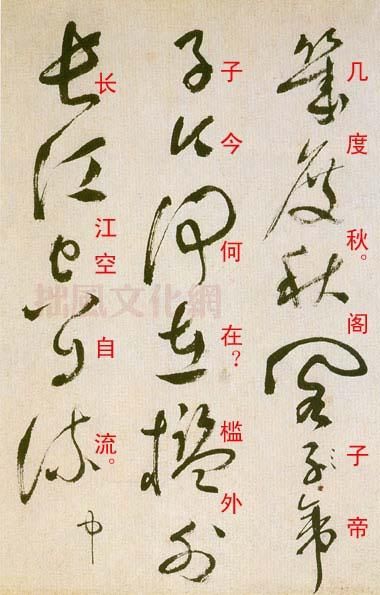 幾度秋閣子帝
几度秋。阁子帝
子今何在檻外
子今何在?槛外
長江空自流
长江空自流。
中
拙風文化網